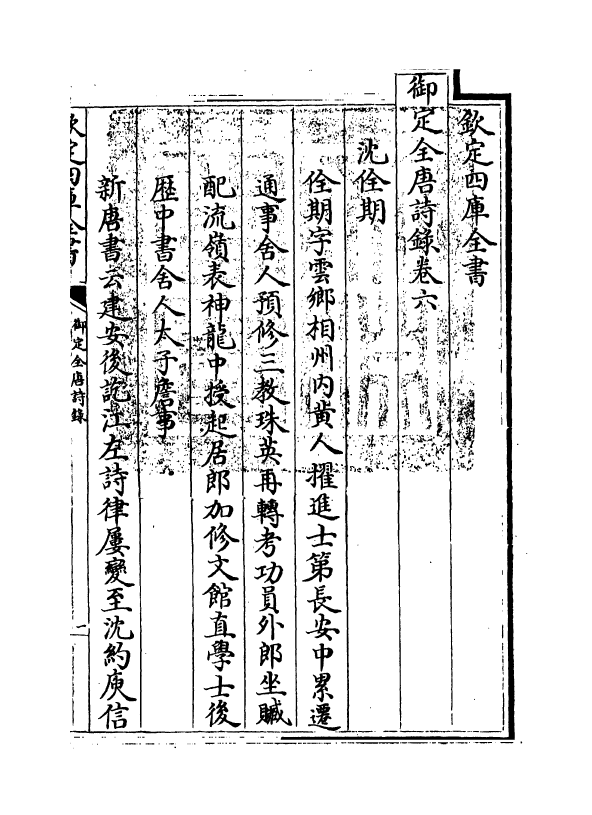 欽定四庫全書
御定全唐詩錄卷六
沈佺期
佺期字雲鄉相州内黄人擢進士第長安中累遷
通事舍人預修三教珠英再轉考功員外郎坐贓
配流嶺表神龍中授起居郎加修文館直學士後
歴中書舍人太子詹事
新唐書云建安後訖江左詩律屢變至沈約庾信
欽定四庫全書
御定全唐詩錄